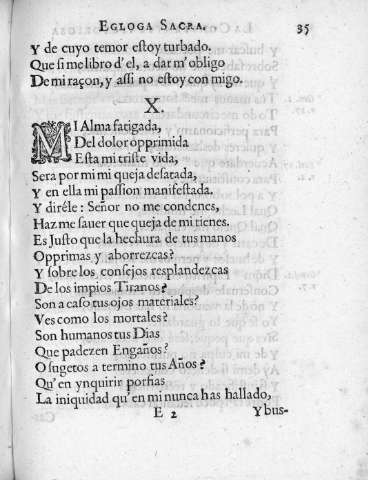 EGLOGA SACRA. 35
Y de cuyo temor estoy turbado.
Que si me libro d'el, a dar m'obligo
De mi raçon, y assi no estoy con migo.
X.
MI Alma fatigada,
Del dolor opprimida
Esta mi triste vida,
Sera por mi mi queja desatada,
Y en ella mi passion manifestada.
Y diréle: Señor no me condenes,
Haz me sauer que queja de mi tienes.
Es Justo que la hechura de tus manos
Opprimas y aborrezcas?
Y sobre los consejos resplandezcas
De los impios Tiranos?
Son a caso tus ojos materiales?
Ves como los mortales?
Son humanos tus Dias
Que padezen Engaños?
O sugetos a termino tus Años?
Qu'en ynquirir porfias
La iniquidad qu'en mi nunca has hallado,
E 2 Y bus-